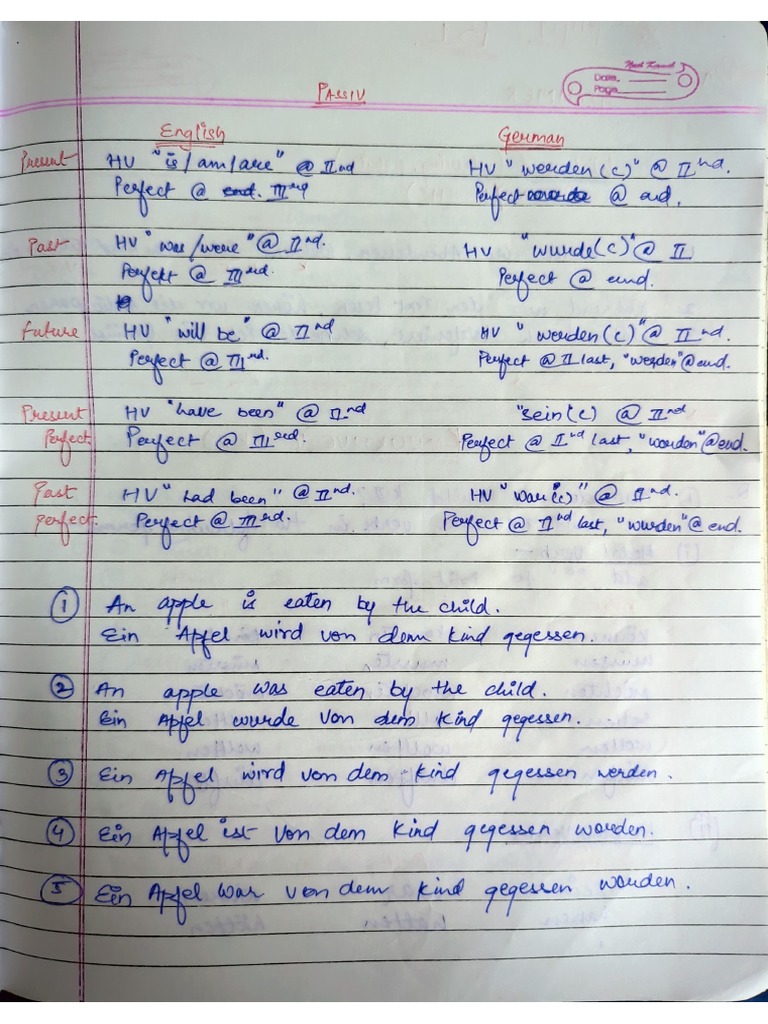 Date.
Page
PASSIV
English German
Present HV "is/am/are" @ IInd HV "werden(c)" @ IInd.
Perfect @ IIIrd Perfect @ end.
Past HV "was/were" @ IInd. HV "wurde(c)" @ II
Perfekt @ IIIrd. Perfect @ end.
Future HV "will be" @ IInd HV "werden(c)" @ IInd.
Perfect @ IIIrd. Perfect @ II last, "werden" @ end.
Present HV "have been" @ IInd "sein(c) @ IInd
Perfect Perfect @ IIIrd. Perfect @ IInd last, "worden" @ end.
Past HV "had been" @ IInd. HV "war(c)" @ IInd.
perfect. Perfect @ IIIrd. Perfect @ IInd last, "wurden" @ end.
1 An apple is eaten by the child.
Ein Apfel wird von dem Kind gegessen.
2 An apple was eaten by the child.
Ein Apfel wurde von dem Kind gegessen.
3 Ein Apfel wird von dem Kind gegessen werden.
4 Ein Apfel ist von dem Kind gegessen worden.
5 Ein Apfel war von dem Kind gegessen worden.